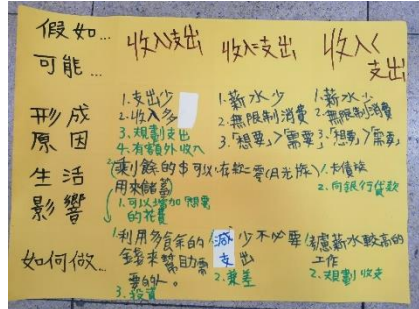 假如...
可能...
收入>支出
收入=支出
收入<
支出
形成
原因
1.支出少
2.收入多
3.規劃支出
4.有額外收入
1.薪水少
2.無限制消費
3.想要>需要
1.薪水少
2.無限制消費
3.想要>需要
生活
影響
剩餘的$可以
用來儲蓄
1.可以增加想要
的花費
存款=零(月光族)
1.卡債族
2.向銀行貸款
如何做...
1.利用多餘的
金錢來幫助需
要的人。
3.投資
減少不必要
支出
2.兼差
1.考慮薪水較高的
工作
2.規劃收支